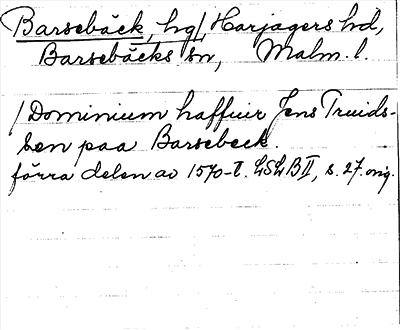 Barsebäck, hg/, Harjagers hd,
Barsebäcks sn, Malm. l.
/ Dominium haffuer Jens Truids-
sen paa Barsebeck.
förra delen av 1570-t. LSLB II, s. 27. orig.